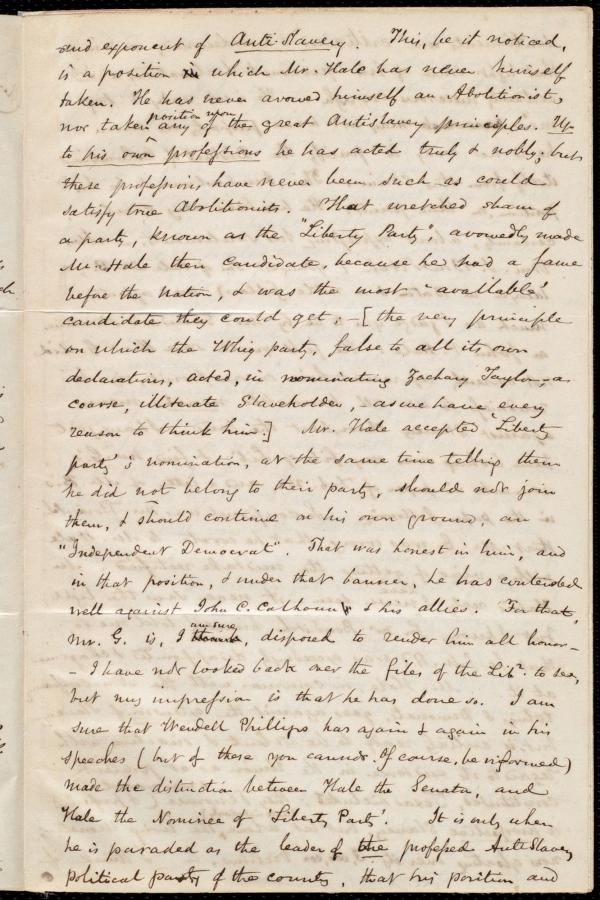 and exponent of Anti-Slavery. This, be it noticed,
is a position in which Mr. Hale has never himself
taken. He has never avowed himself an Abolitionist,
position upon
nor taken any of the great Antislavery principles. Up
to his own professions he has acted truly & nobly; but
these professions have never been such as could
satisfy true Abolitionists. That wretched sham of
a party, known as the "Liberty Party", avowedly made
Mr. Hale their candidate, because he had a fame
before the nation, & was the most "available"
candidate they could get; – [the very principle
on which the Whig party, false to all its own
declarations, acted, in nominating Zachary Taylor, a
coarse, illiterate Slaveholder, – as we have every
reason to think him.] Mr. Hale accepted 'Liberty
party's nomination, at the same time telling them
he did not belong to their party, should not join
them, & should continue on his own ground, an
"Independent Democrat". That was honest in him, and
in that position, & under that banner, he has contended
well against John C. Calhoun & his allies. For that,
am sure
Mr. G. is, I think, disposed to render him all honor –
– I have not looked back over the files of the Libr. to see,
but my impression is that he has done so. I am
sure that Wendell Phillips has again & again in his
speeches (but of these you cannot, of course, be informed)
made the distinction between Hale the Senator, and
Hale the Nominee of 'Liberty Party'. It is only when
he is paraded as the leader of the professed AntiSlavery
political party of the country, that his position and